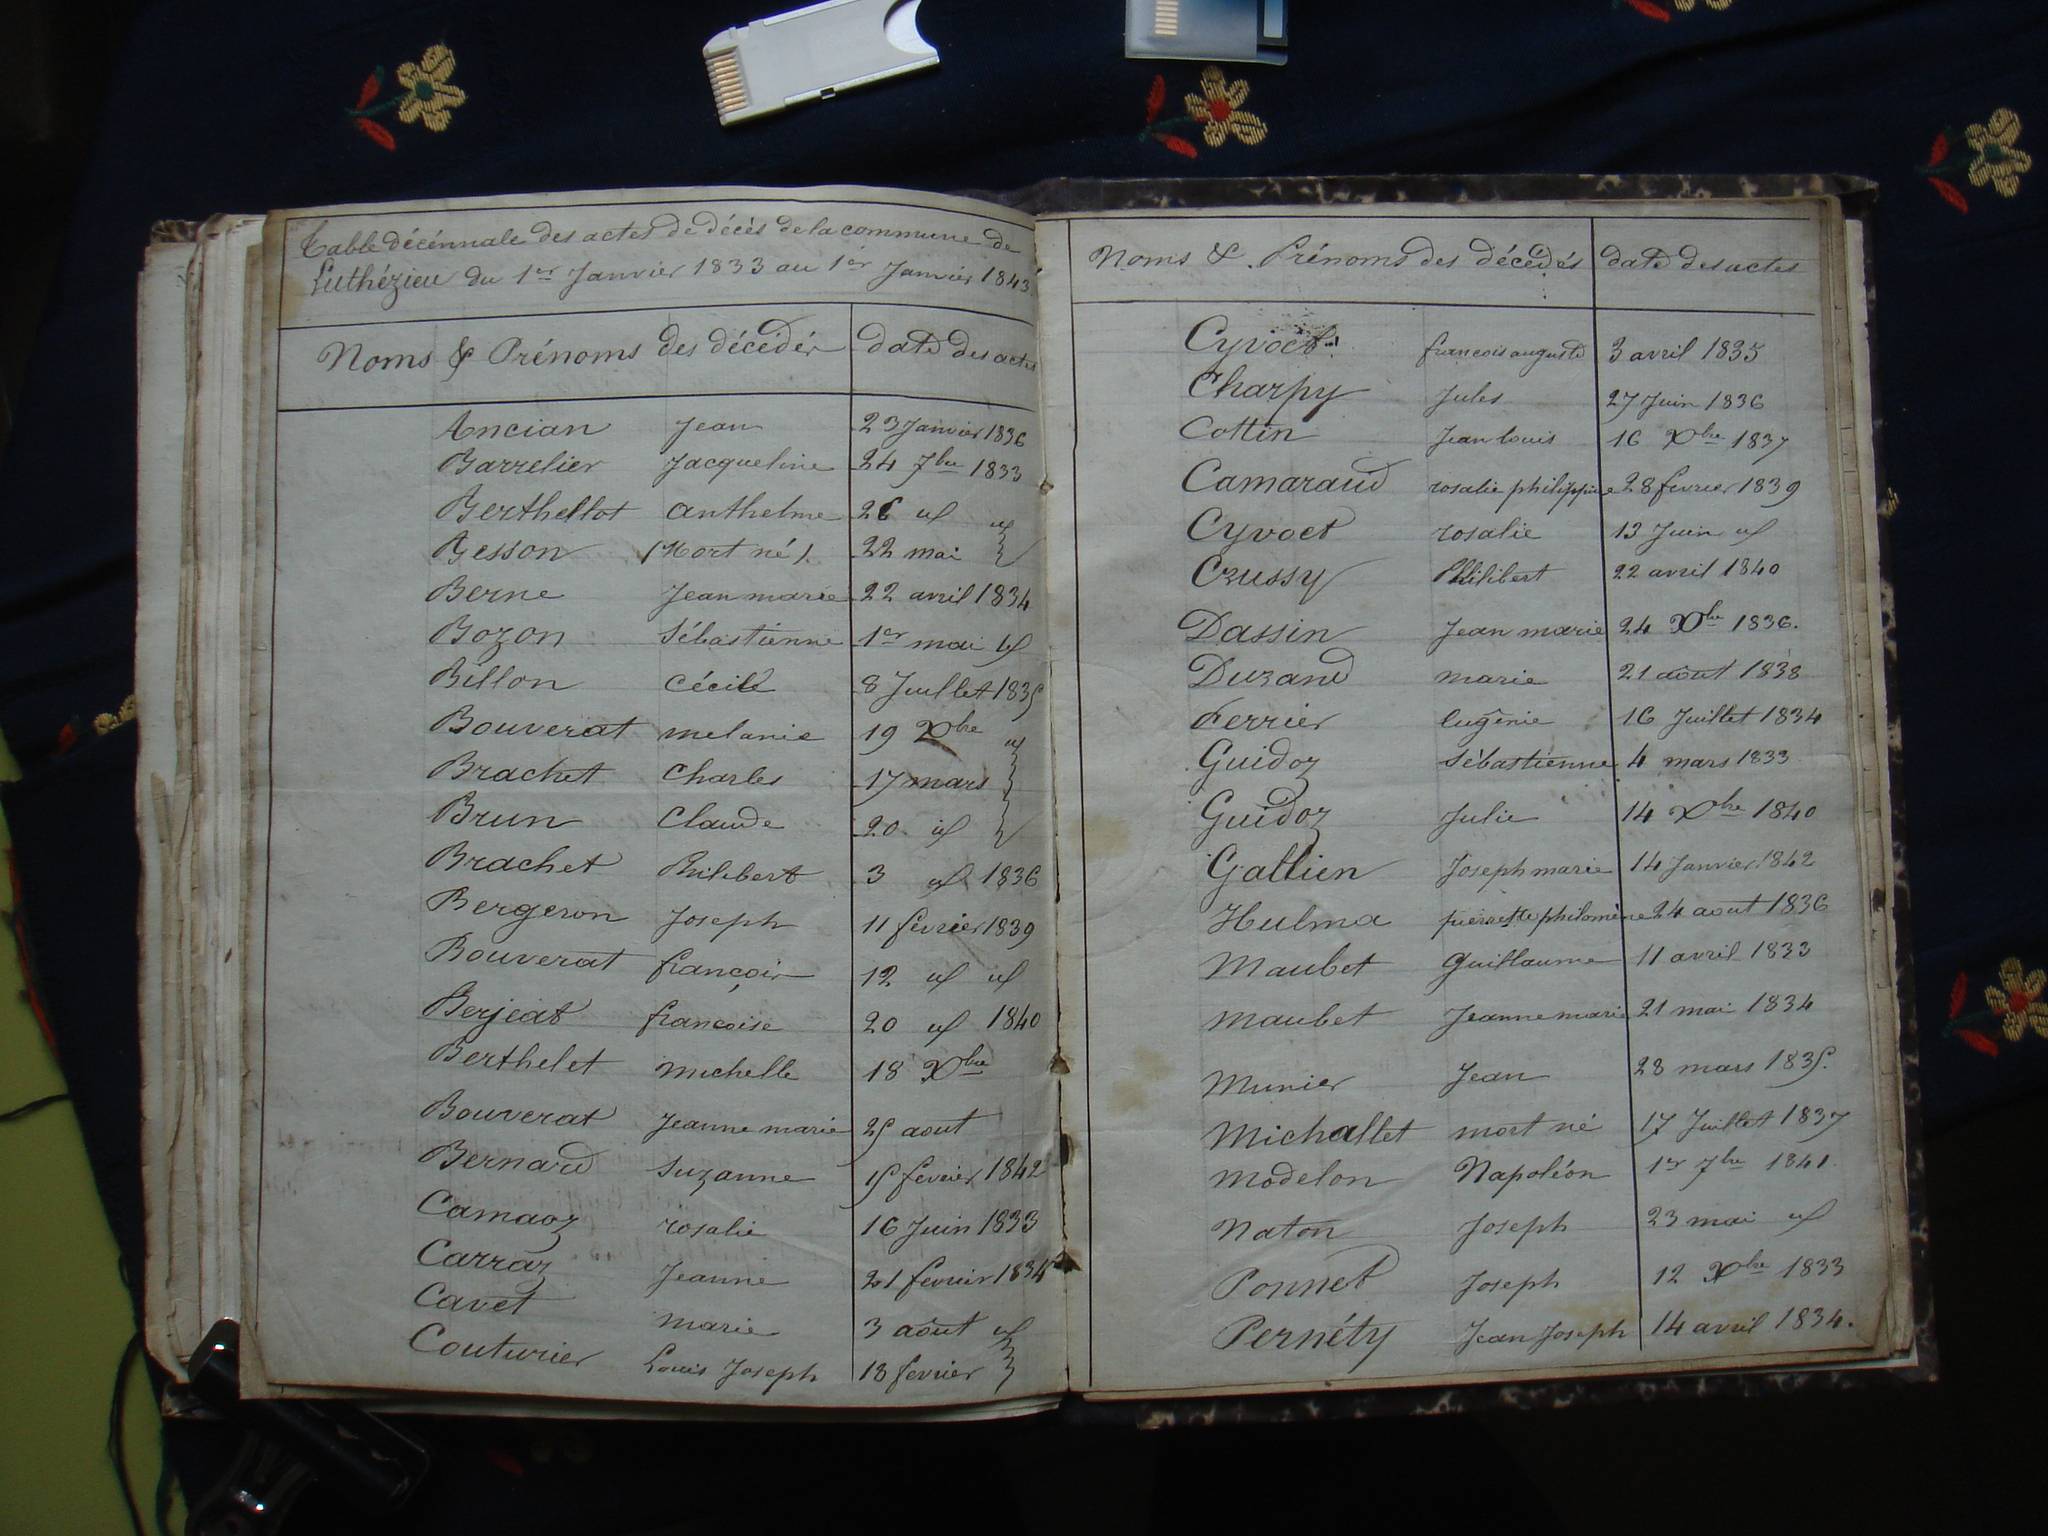 Table décénnale des actes de décès de la commune de
Luthézieu du 1er Janvier 1833 au 1er Janvier 1843
Noms & Prénoms des décédés date des actes
Ancian Jean 23 Janvier 1836
Barrelier Jacqueline 24 7bre 1833
Berthellot anthelme 26 id id
Besson (Mort né) 22 mai
Berne Jean marie 22 avril 1834
Bozon Sébastienne 1er mai id
Billon Cécile 8 Juillet 1835
Bouverat melanie 19 Xbre id
Brachet Charles 17 mars
Brun Claude 20 id
Brachet Philibert 3 id 1836
Bergeron Joseph 11 fevrier 1839
Bouverat françois 12 id id
Berjeat francoise 20 id 1840
Berthelet Michelle 18 Xbre
Bouverat Jeanne marie 25 aout
Bernard Suzanne 15 fevrier 1842
Camaoz rosalie 16 Juin 1833
Carraz Jeanne 21 fevrier 1834
Cavet Marie 3 août id
Couturier Louis Joseph 18 fevrier
Noms & Prénoms des décédés date des actes
Cyvoct francois auguste 3 avril 1835
Charpy Jules 27 Juin 1836
Cottin Jean louis 16 Xbre 1837
Camaraud rosalie philippine 28 fevrier 1839
Cyvoct rosalie 13 Juin id
Crussy Philibert 22 avril 1840
Dassin Jean marie 24 Xbre 1836.
Durand marie 21 août 1838
Ferrier Eugénie 16 Juillet 1834
Guidoz Sébastienne 4 mars 1833
Guidoz Julie 14 Xbre 1840
Gallien Joseph marie 14 Janvier 1842
Hulma pierrette philomène 24 aout 1836
Maubet Guillaume 11 avril 1833
Maubet Jeanne marie 21 mai 1834
Munier Jean 28 mars 1835.
Michallet mort né 17 Juillet 1837
Modelon Napoléon 1er 7bre 1841.
Naton Joseph 23 mai id
Ponnet Joseph 12 Xbre 1833
Pernéty Jean Joseph 14 avril 1834.